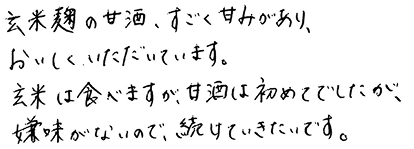 玄米麹の甘酒、すごく甘みがあり、
おいしくいただいています。
玄米は食べますが、甘酒は初めてでしたが、
嫌味がないので、続けていきたいです。